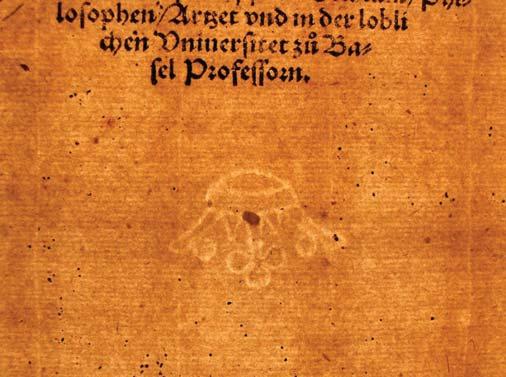 Phi-
losophen/Artzet vnd in der lobli
chen Vniuersitet zů Ba-
sel Professorn.